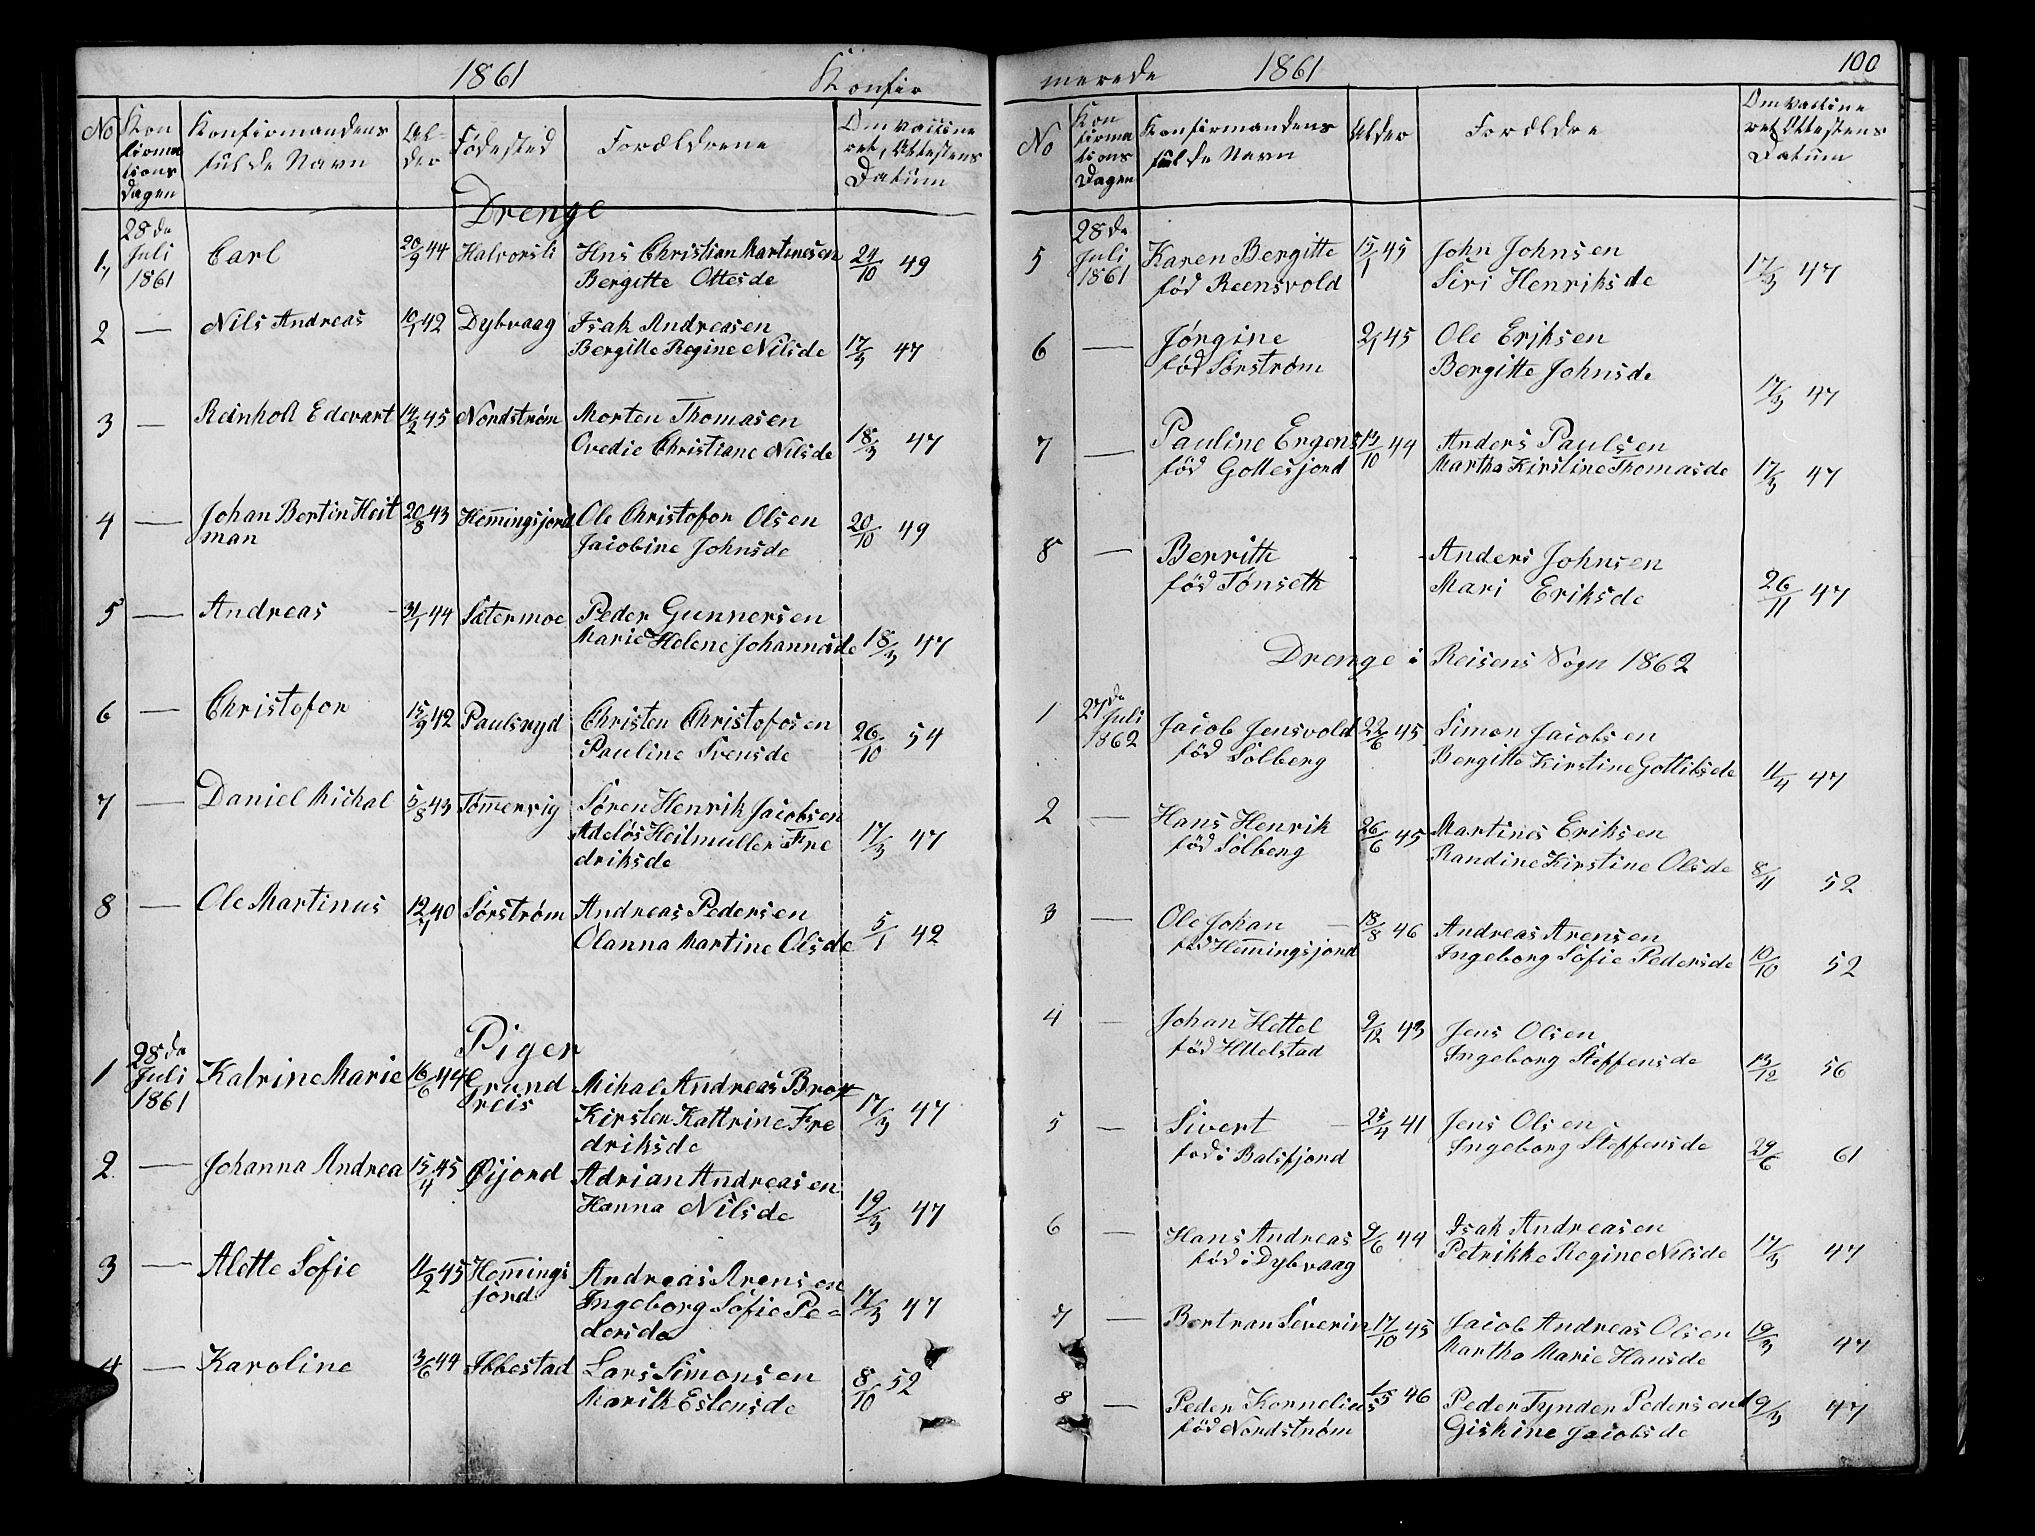 1861 Konfir
No Kon Konfirmandens Al- Fødested Forældrene Om vaccine
firma fulde Navn der ret, Attestens
tions Datum
Dagen
Drenge
1, 28de Juli 1861 Carl 20/9 44 Halvorsli Hns Christian Martinesen 24/10 49
Bergitte Ottesde
2 — Nils Andreas 10/1 42 Dybvaag Isak Andreasen
Bergitte Regine Nilsde 17/3 47
3 — Reinholt Edevart 14/2 45 Nordstrøm Morten Thomasen
Ovedie Christiane Nilsde 18/3 47
4 — Johan Bertin Heit 20/8 43 Hemingsjord Ole Christofor Olsen 20/10 49
man Jacobine Johnsde
5 — Andreas 31/1 44 Sætermoe Peder Gunnersen
Marie Helene Johannesde 18/3 47
6 — Christofor 15/9 42 Paulsryd Christen Christofosen 26/10 54
Pauline Svensde
7 — Daniel Mickal 5/8 43 Tømmervig Søren Henrik Jacobsen
Adeløs Heilmuller Fre 17/3 47
driksde
8 — Ole Martinus 12/1 40 Sørstrøm Andreas Pedersen
Olanna Martine Olsde 5/1 42
Piger
1 28de Juli 1861 Katrine Marie 16/6 44 Grund Mikal Andreas Brox
reis Kirsten Kattrine Fre 17/3 47
driksde
2 — Johanna Andrea 15/4 45 Øijord Adrian Andreasen
Hanna Nilsde 19/3 47
3 — Alette Sofie 11/2 45 Hemings Andreas Arensen
jord Ingeborg Sofie Pe- 17/3 47
dersde
4 — Karoline 3/6 44 Ibbestad Lars Simonsen 8/10 52
Marith Estensde
merede 1861 100
No Kon Konfirmandens Alder Forældre Om vaccine
firma fulde Navn ret Attestens
tions Datum
Dagen
5 28de Juli 1861 Karen Bergitte 15/1 45 John Johnsen
fød Reensvold Siri Henriksde 17/3 47
6 — Jørgine 2/1 45 Ole Eriksen
fød Sørstrøm Bergitte Johnsde 17/3 47
7 — Pauline Ergens 13/10 44 Anders Paulsen
fød Gottesjord Martha Kirstine Thomasde 17/3 47
8 — Berrith - - Anders Johnsen
fød Tønseth Mari Eriksde 26/11 47
Drenge i Reisens Sogn 1862
1 27de Juli 1862 Jacob Jensvold 22/6 45 Simon Jacobsen
fød Solberg Bergitte Kirstine Gottlibsde 11/4 47
2 — Hans Henrik 26/6 45 Martines Eriksen
fød Solberg Randine Kirstine Olsde 8/11 52
3 — Ole Johan — 18/8 46 Andreas Arensen
fød Hemingsjord Ingeborg Sofie Pedersde 10/10 52
4 — Johan Hettel 9/12 43 Jens Olsen
fød Hllelstad Ingeborg Steffensde 13/12 56
5 — Sivert — 25/4 41 Jens Olsen
fød i Balsfjord Ingeborg Steffensde 29/6 61
6 — Hans Andreas 9/6 44 Isak Andreasen
fød i Dybvaag Petrikke Regine Nilsde 17/3 47
7 — Bertran Severin 17/10 45 Jacob Andreas Olsen 19/3 47
Martha Marie Hansde
8 — Peder Kornelius 1/5 46 Peder Tynder Pedersen 19/3 47
fød Nordstrøm Giskine Jacobsde